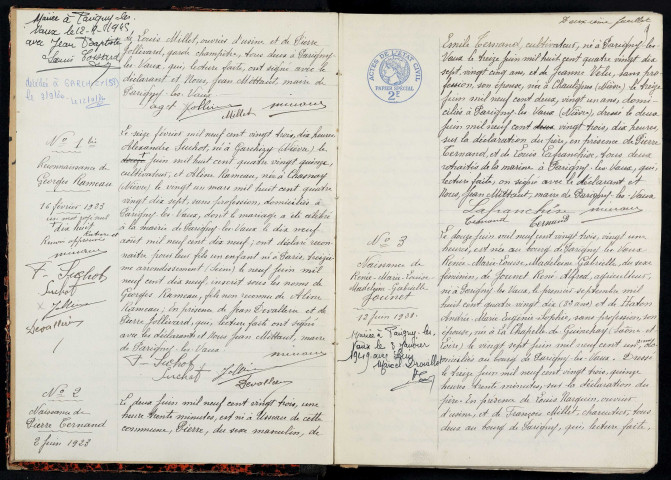 Mariée à Parigny-les-
Vaux le
avec Jean Baptiste
Louis
de Louis Millet, ouvrier d'usine et de Pierre
Jollivard, garde champêtre, tous deux à Parigny
les Vaux, qui, lecture faite, ont signé avec le
déclarant et Nous, Jean Mittaut, maire de
Parigny-les-Vaux
Millet
Décédée à GARCHIZY
le
N° 1 bis
Reconnaissance de
Georges Rameau
16 février 1923
Le seize février mil neuf cent vingt trois, dix heures
Alexandre Suchot, né à Garchizy (Nièvre) le
juin mil huit cent quatre vingt quinze,
cultivateur, et Aline Rameau, née à Chasnay
(Nièvre) le vingt un mars mil huit cent quatre
vingt dix sept, sans profession, domiciliés à
Parigny les Vaux, dont le mariage a été célébré
à la mairie de Parigny les Vaux le dix neuf
août mil neuf cent dix neuf; ont déclaré recon-
naître pour leur fils un enfant né à Paris,
arrondissement (Seine) le neuf juin mil
neuf cent dix neuf, inscrit sous les noms de
Georges Rameau, fils non reconnu de Aline
Rameau; en présence de Jean Devallière et de
Pierre Jollivard, qui, lecture faite ont signé
avec les déclarants et Nous Jean Mittaut, maire
de Parigny les Vaux.
N° 2
Naissance de
Pierre Ternand
2 juin 1923
Le deux juin mil neuf cent vingt trois, une
heure trente minutes, est né à Usseau de cette
commune, Pierre, du sexe masculin, de
Deuxième feuillet
ACTES DE L'ETAT CIVIL
PAPIER SPECIAL
2F
Emile Ternand, cultivateur, né à Parigny les
Vaux le treize juin mil huit cent quatre vingt dix
sept, vingt cinq ans, et de Jeanne Velu, sans pro-
fession, son épouse, née à Chaulgnes (Nièvre) le treize
juin mil neuf cent deux, vingt un ans, domi-
ciliés à Parigny les Vaux (Nièvre), dressé le deux
juin mil neuf cent vingt trois, dix heures,
sur la déclaration du père, en présence de Pierre
Ternand et de Louis Lafranchise, tous deux
retraités de la marine à Parigny les Vaux, qui,
lecture faite, on signé avec le déclarant et
Nous, Jean Mittaut, maire de Parigny les Vaux.
Lafranchise
Ternand
N° 3
Naissance de
Renée-Marie-Louise
Madeleine Gabrielle
Jouinet
12 juin 1923.
Mariée à Parigny-les-
Vaux le 3
1949 avec Guy
Marcel
Le douze juin mil neuf cent vingt trois, vingt une
heures, est née au bourg de Parigny les Vaux
Renée-Marie-Louise-Madeleine Gabrielle, du sexe
féminin, de Jouinet René Alfred, apiculteur,
né à Parigny les Vaux, le premier septembre mil
huit cent quatre vingt dix (32 ans) et de
Andrée-Marie Eugénie-Sophie, sans profession, son
épouse, née à La Chapelle de Guinchay (Saône et
Loire) le vingt sept juin mil neuf cent un, do-
miciliés au bourg de Parigny les Vaux. Dressé
le treize juin mil neuf cent vingt trois, quinze
heures trente minutes, sur la déclaration du
père. En présence de Louis Marquin, ouvrier
d'usine, et de François Millet, charretier, tous
deux au bourg de Parigny, qui, lecture faite,